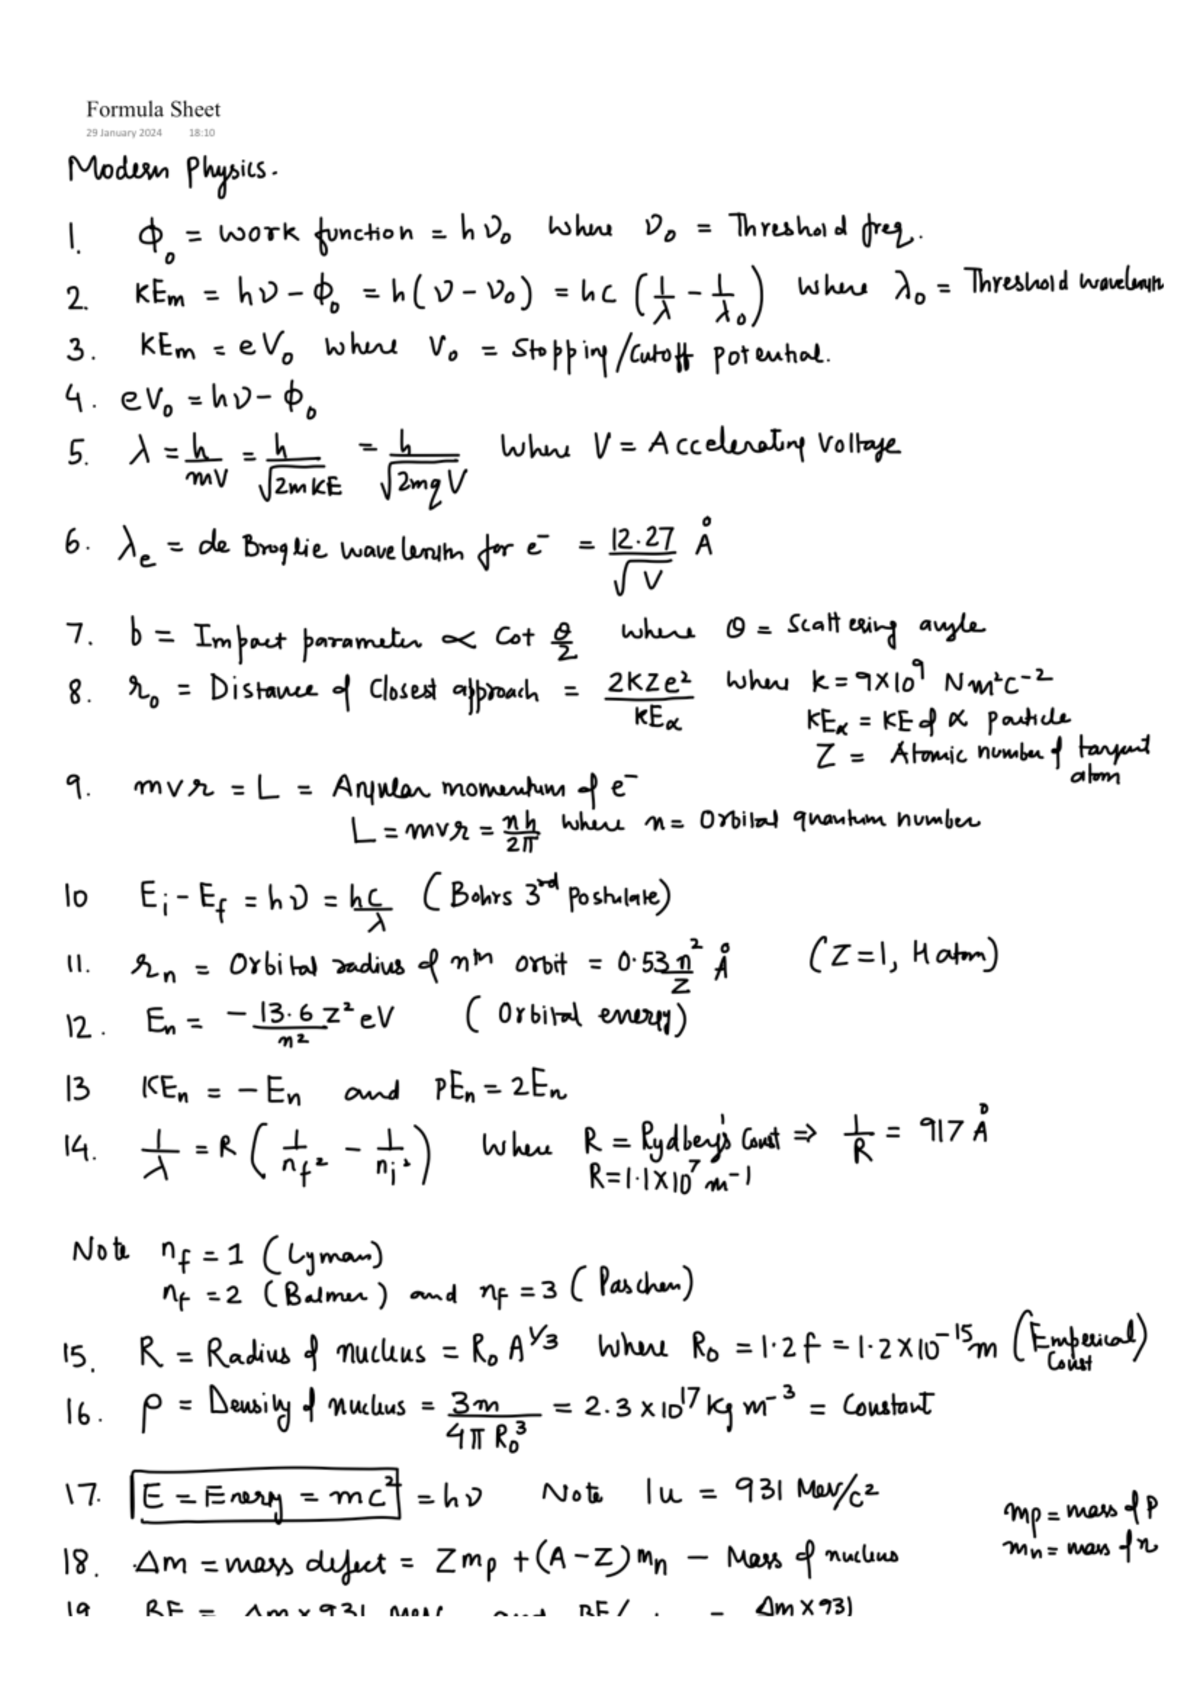 Formula Sheet
29 January 2024 18:10
Modern Physics.
1. ϕ₀ = work function = hν₀ where ν₀ = Threshold freq.
2. KEm = hν - ϕ₀ = h(ν - ν₀) = hc (1/λ - 1/λ₀) where λ₀ = Threshold wavelength
3. KEm = eV₀ where V₀ = Stopping/Cutoff potential.
4. eV₀ = hν - ϕ₀
5. λ = h/mV = h/√2mKE = h/√2mqV where V = Accelerating Voltage
6. λe = de Broglie wavelength for e⁻ = 12.27/√V Å
7. b = Impact parameter ∝ Cot θ/2 where θ = Scattering angle
8. r₀ = Distance of Closest approach = 2KZe²/KEα where k = 9X10⁹ Nm²C⁻²
KEα = KE of α particle
Z = Atomic number of target
atom
9. mvr = L = Angular momentum of e⁻
L = mvr = nh/2π where n = Orbital quantum number
10 Ei - Ef = hν = hc/λ (Bohrs 3rd Postulate)
11. rn = Orbital radius of nth orbit = 0.53 n²/Z Å (Z=1, H atom)
12. En = -13.6 Z²/n² eV (Orbital energy)
13 KEn = - En and PEn = 2En
14. 1/λ = R (1/nf² - 1/ni²) where R = Rydberg's Const ⇒ 1/R = 917 Å
R = 1.1X10⁷ m⁻¹
Note nf = 1 (Lyman)
nf = 2 (Balmer) and nf = 3 (Paschen)
15. R = Radius of nucleus = R₀ A^1/3 where R₀ = 1.2 f = 1.2 X 10⁻¹⁵ m (Emperical)
Const
16. ρ = Density of nucleus = 3m/4πR₀³ = 2.3 x 10¹⁷ kg m⁻³ = Constant
17. E = Energy = mc² = hν Note 1u = 931 Mev/c²
mp = mass of P
mn = mass of n
18. Δm = mass defect = Zmp + (A-Z)mn - Mass of nucleus